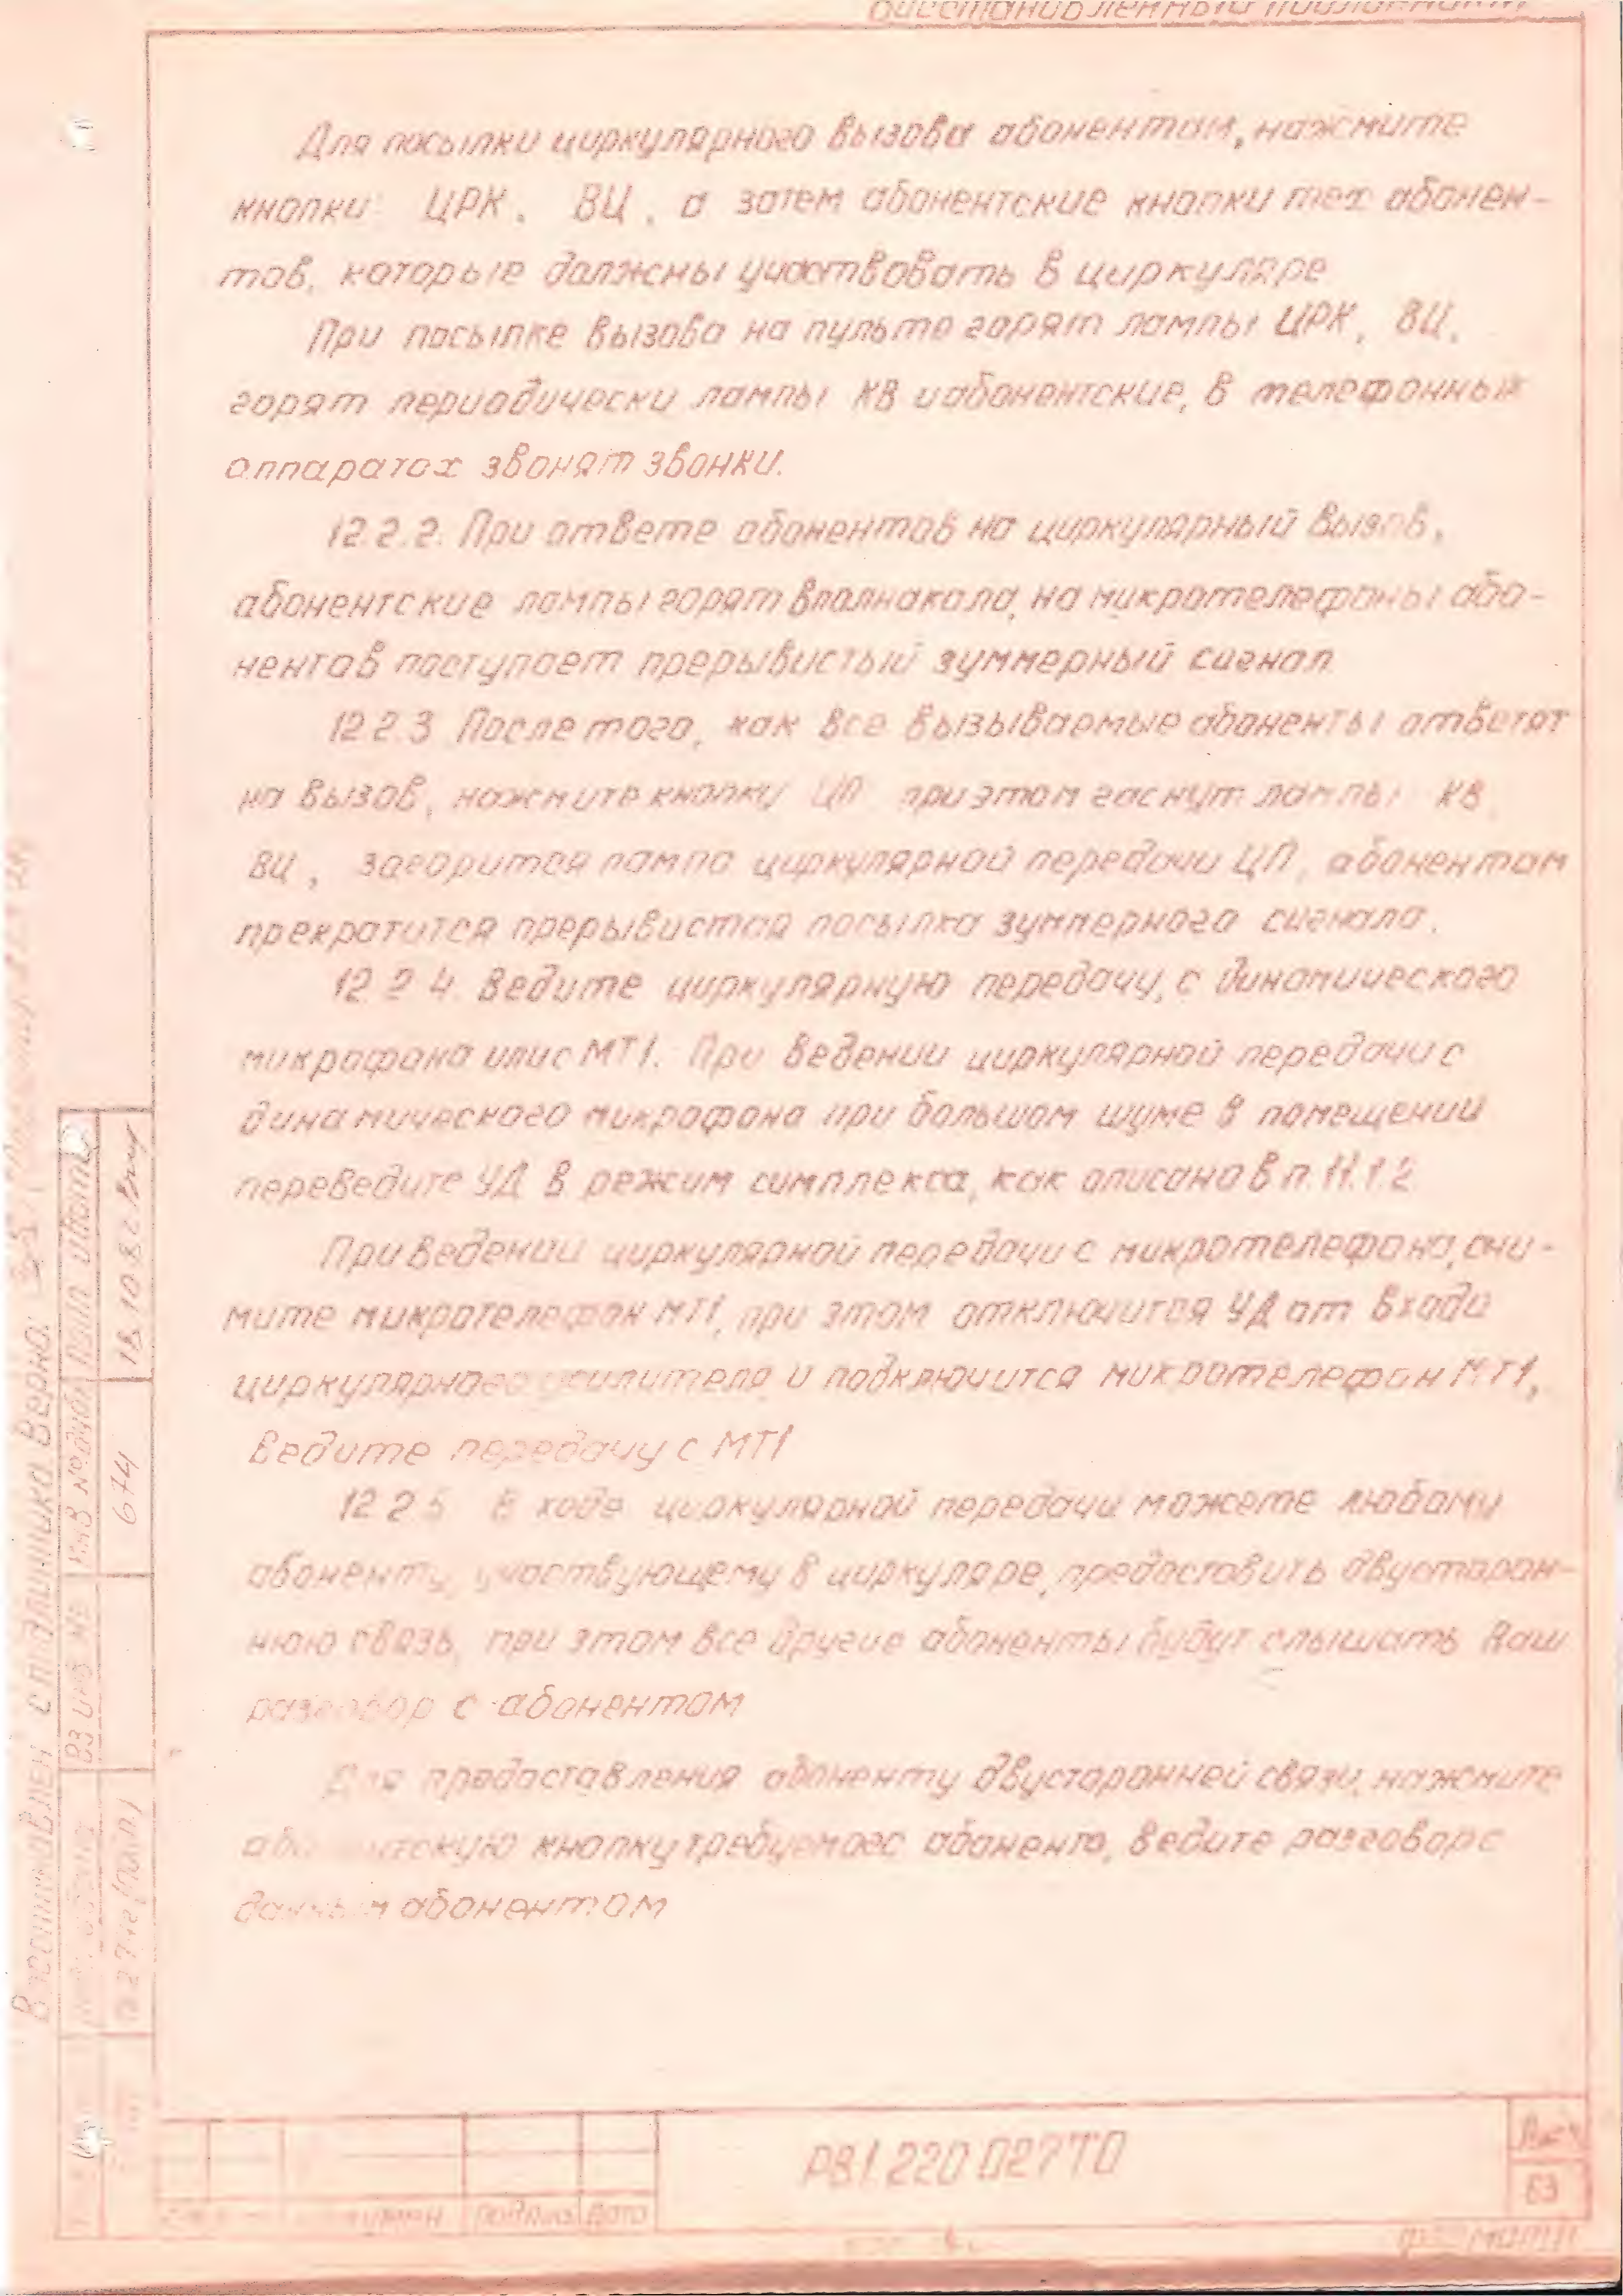 Для посылки циркулярного вызова абонентам, нажмите
кнопки ЦРК, ВЦ, а затем абонентские кнопки тех абонен-
тов, которые должны участвовать в циркуляре
При посылке вызова на пульте горят лампы ЦРК, ВЦ,
горят периодически лампы КВ и абонентские, в телефонных
аппаратах звонят звонки.
12.2.2. При ответе абонентов на циркулярный вызов,
абонентские лампы горят вполнакала, на микротелефоны або-
нентов поступает прерывистый зуммерный сигнал
12.2.3 После того, как все вызываемые абоненты ответят
на вызов, нажмите кнопку ЦП при этом гаснут лампы КВ
ВЦ, загорится лампа циркулярной передачи ЦП, абонентам
прекратится прерывистая посылка зуммерного сигнала.
12.2.4. Ведите циркулярную передачу, с динамического
микрофона или с МТ1. При ведении циркулярной передачи с
динамического микрофона при большом шуме в помещении
переведите УД в режим симплекса, как описано в п. 11.1.2
При ведении циркулярной передачи с микротелефона, сни-
мите микротелефон МТ1, при этом отключится УД от входа
циркулярного усилителя и подключится микротелефон МТ1,
ведите передачу с МТ1
12.2.5 В ходе циркулярной передачи можете любому
абоненту, участвующему в циркуляре, предоставить двусторон-
нюю связь, при этом все другие абоненты будут слышать Ваш
разговор с абонентом
Для предоставления абоненту двусторонней связи, нажмите
абонентскую кнопку требуемого абонента, ведите разговор с
данным абонентом
Восстановлен с подлинника Верно:
Инв № дубл Подп и дата
674 18.10.82
Вз инв №
РВ1.220.027ТО
Лист
63
докум подпись дата